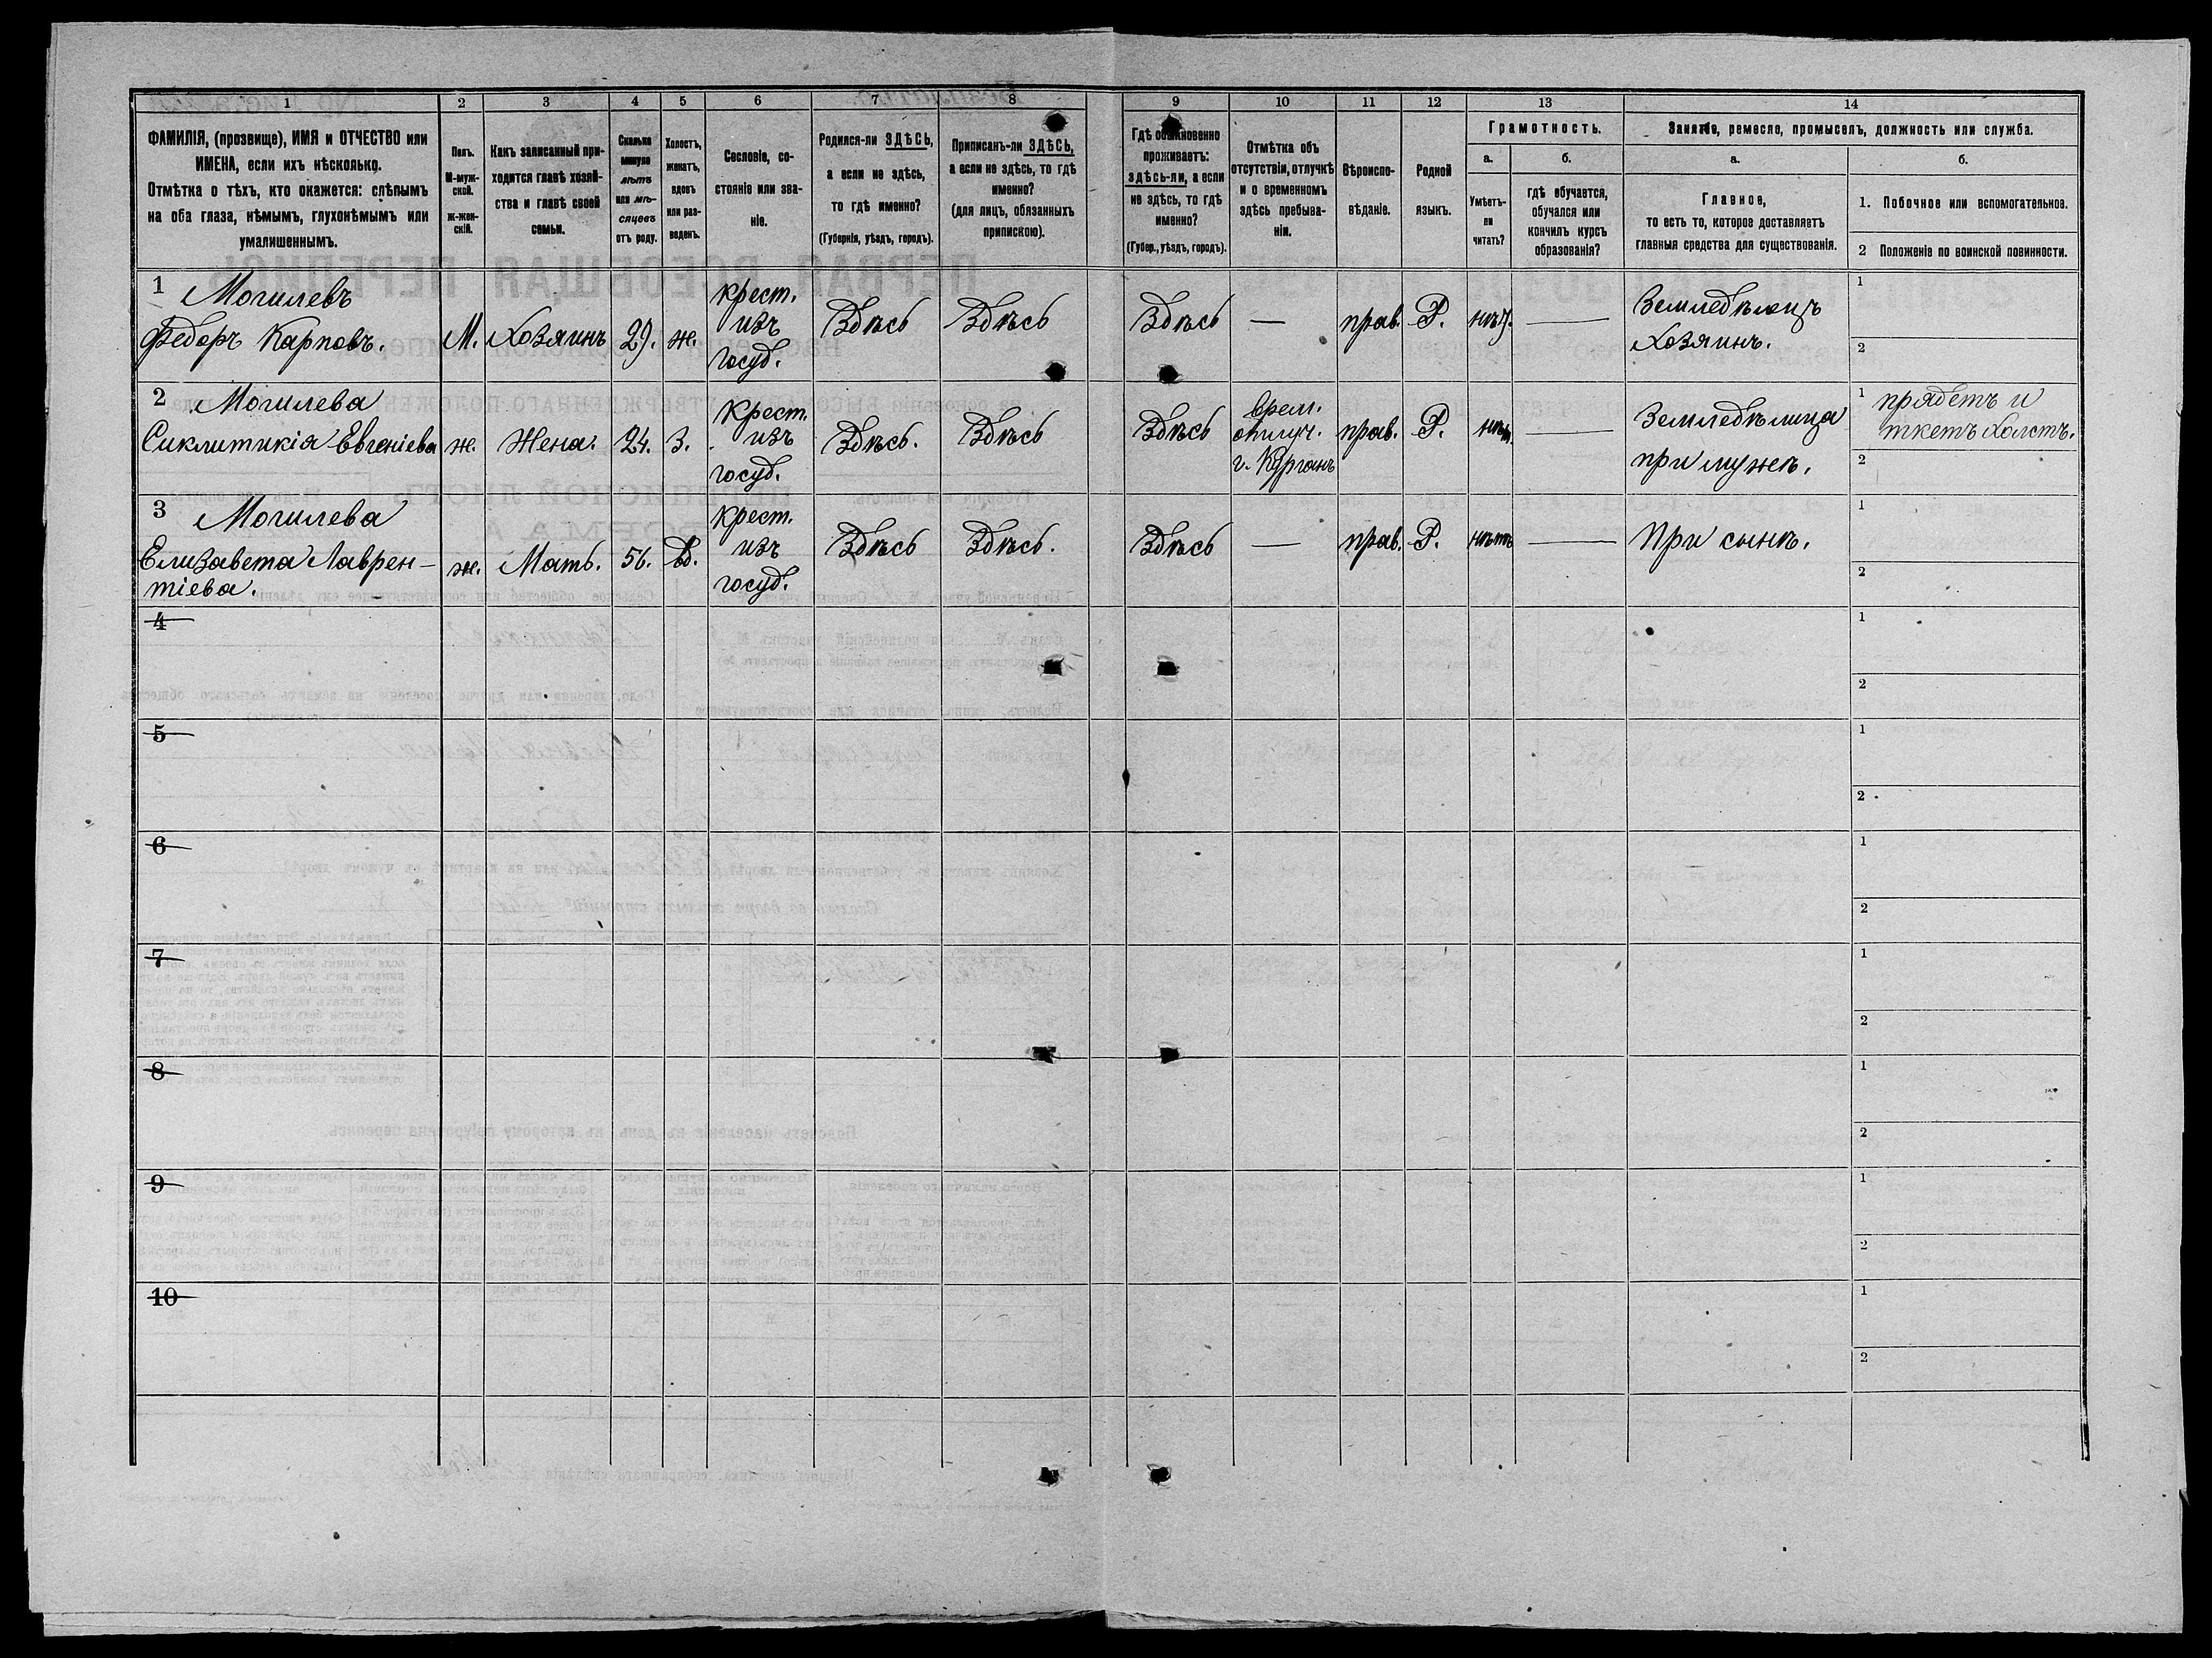 1 2 3 4 5 6 7 8 9 10 11 12 13 14
ФАМИЛІЯ, (прозвище), ИМЯ и ОТЧЕСТВО или
ИМЕНА, если ихъ нѣсколько.
Отмѣтка о тѣхъ, кто окажется: слѣпымъ
на оба глаза, нѣмымъ, глухонѣмымъ или
умалишеннымъ.
Полъ.
М-муж-
ской.
ж-жен-
скій.
Какъ записанный при-
ходится главѣ хозяй-
ства и главѣ своей
семьи.
Сколько
минуло
лѣтъ
или мѣ-
сяцевъ
отъ роду.
Холостъ,
женатъ,
вдовъ
или раз-
веденъ.
Сословіе, со-
стояніе или зва-
ніе.
Родился-ли ЗДѢСЬ,
а если не здѣсь,
то гдѣ именно?
(Губернія, уѣздъ, городъ).
Приписанъ-ли ЗДѢСЬ,
а если не здѣсь, то гдѣ
именно?
(для лицъ, обязанныхъ
припискою).
Гдѣ обыкновенно
проживаетъ:
здѣсь-ли, а если
не здѣсь, то гдѣ
именно?
(Губер., уѣздъ, городъ).
Отмѣтка объ
отсутствіи, отлучкѣ
и о временномъ
здѣсь пребыва-
ніи.
Вѣроиспо-
вѣданіе.
Родной
языкъ.
Грамотность.
а.
Умѣетъ-
ли
читать?
б.
гдѣ обучается,
обучался или
кончилъ курсъ
образованія?
Занятіе, ремесло, промыселъ, должность или служба.
а.
Главное,
то есть то, которое доставляетъ
главныя средства для существованія.
б.
1. Побочное или вспомогательное.
2 Положеніе по воинской повинности.
1 Могилевъ
Федоръ Карповъ.
М.
Хозяинъ
29.
ж.
крест.
изъ
госуд.
Здѣсь
Здѣсь
Здѣсь
—
прав.
Р.
нѣт.
—
Земледѣлецъ
Хозяинъ.
1
2
2 Могилева
Сиклитикія Евгеніева
ж.
Жена.
24.
З.
Крест.
изъ
госуд.
Здѣсь.
Здѣсь
Здѣсь
врем.
отлуч.
г. Курганъ
прав.
Р.
нѣт.
—
Земледѣлица
при мужѣ.
1 прядетъ и
ткетъ холстъ.
2
3 Могилева
Елизавета Лаврен-
тіева.
ж.
Мать.
56.
Вд.
крест.
изъ
госуд.
Здѣсь
Здѣсь.
Здѣсь
—
прав.
Р.
нѣтъ
—
При сынѣ.
1
2
4
1
2
5
1
2
6
1
2
7
1
2
8
1
2
9
1
2
10
1
2